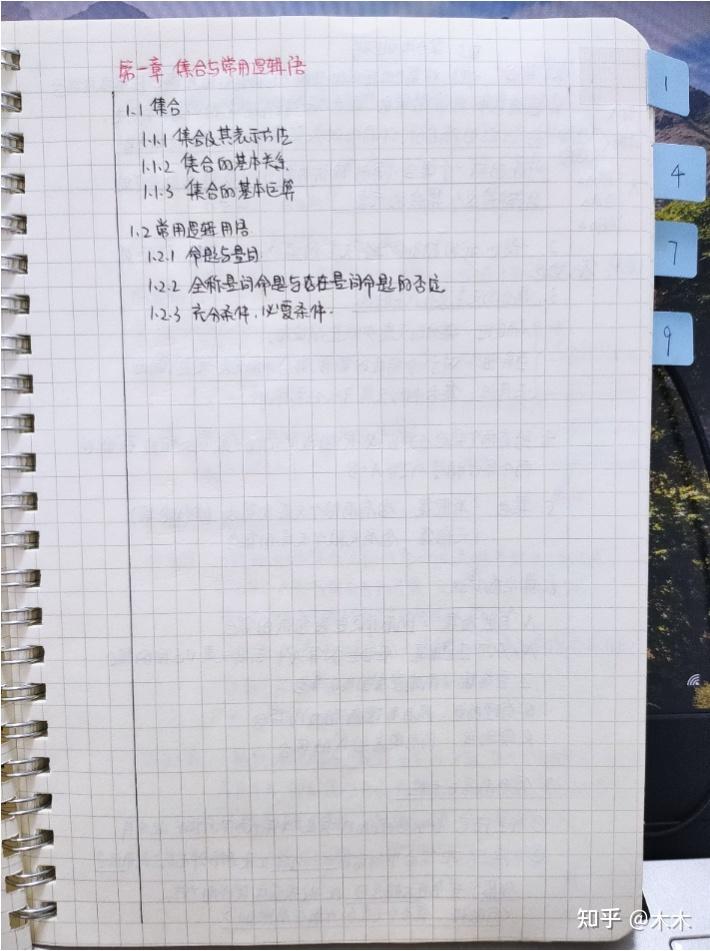 第一章 集合与常用逻辑语
1.1 集合
1.1.1 集合及其表示方法
1.1.2 集合的基本关系
1.1.3 集合的基本运算
1.2 常用逻辑用语
1.2.1 命题与量词
1.2.2 全称量词命题与存在量词命题的否定
1.2.3 充分条件、必要条件.
1
4
7
9
知乎 @木木